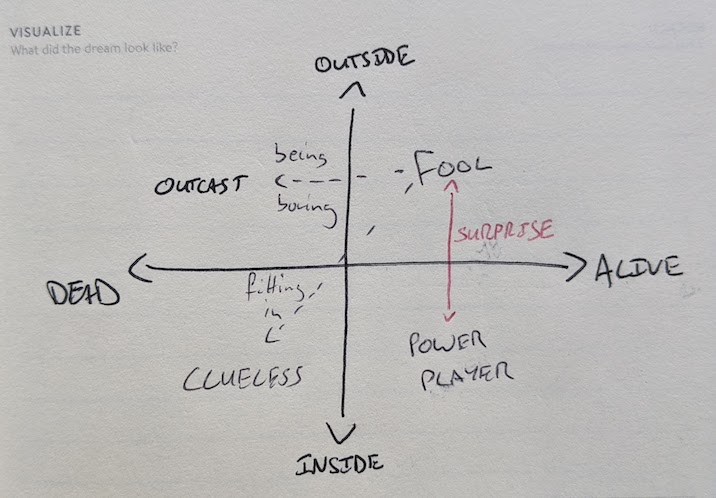 VISUALIZE
What did the dream look like?
OUTSIDE
being
OUTCAST
boring
FOOL
SURPRISE
DEAD
ALIVE
fitting
in
CLUELESS
POWER
PLAYER
INSIDE